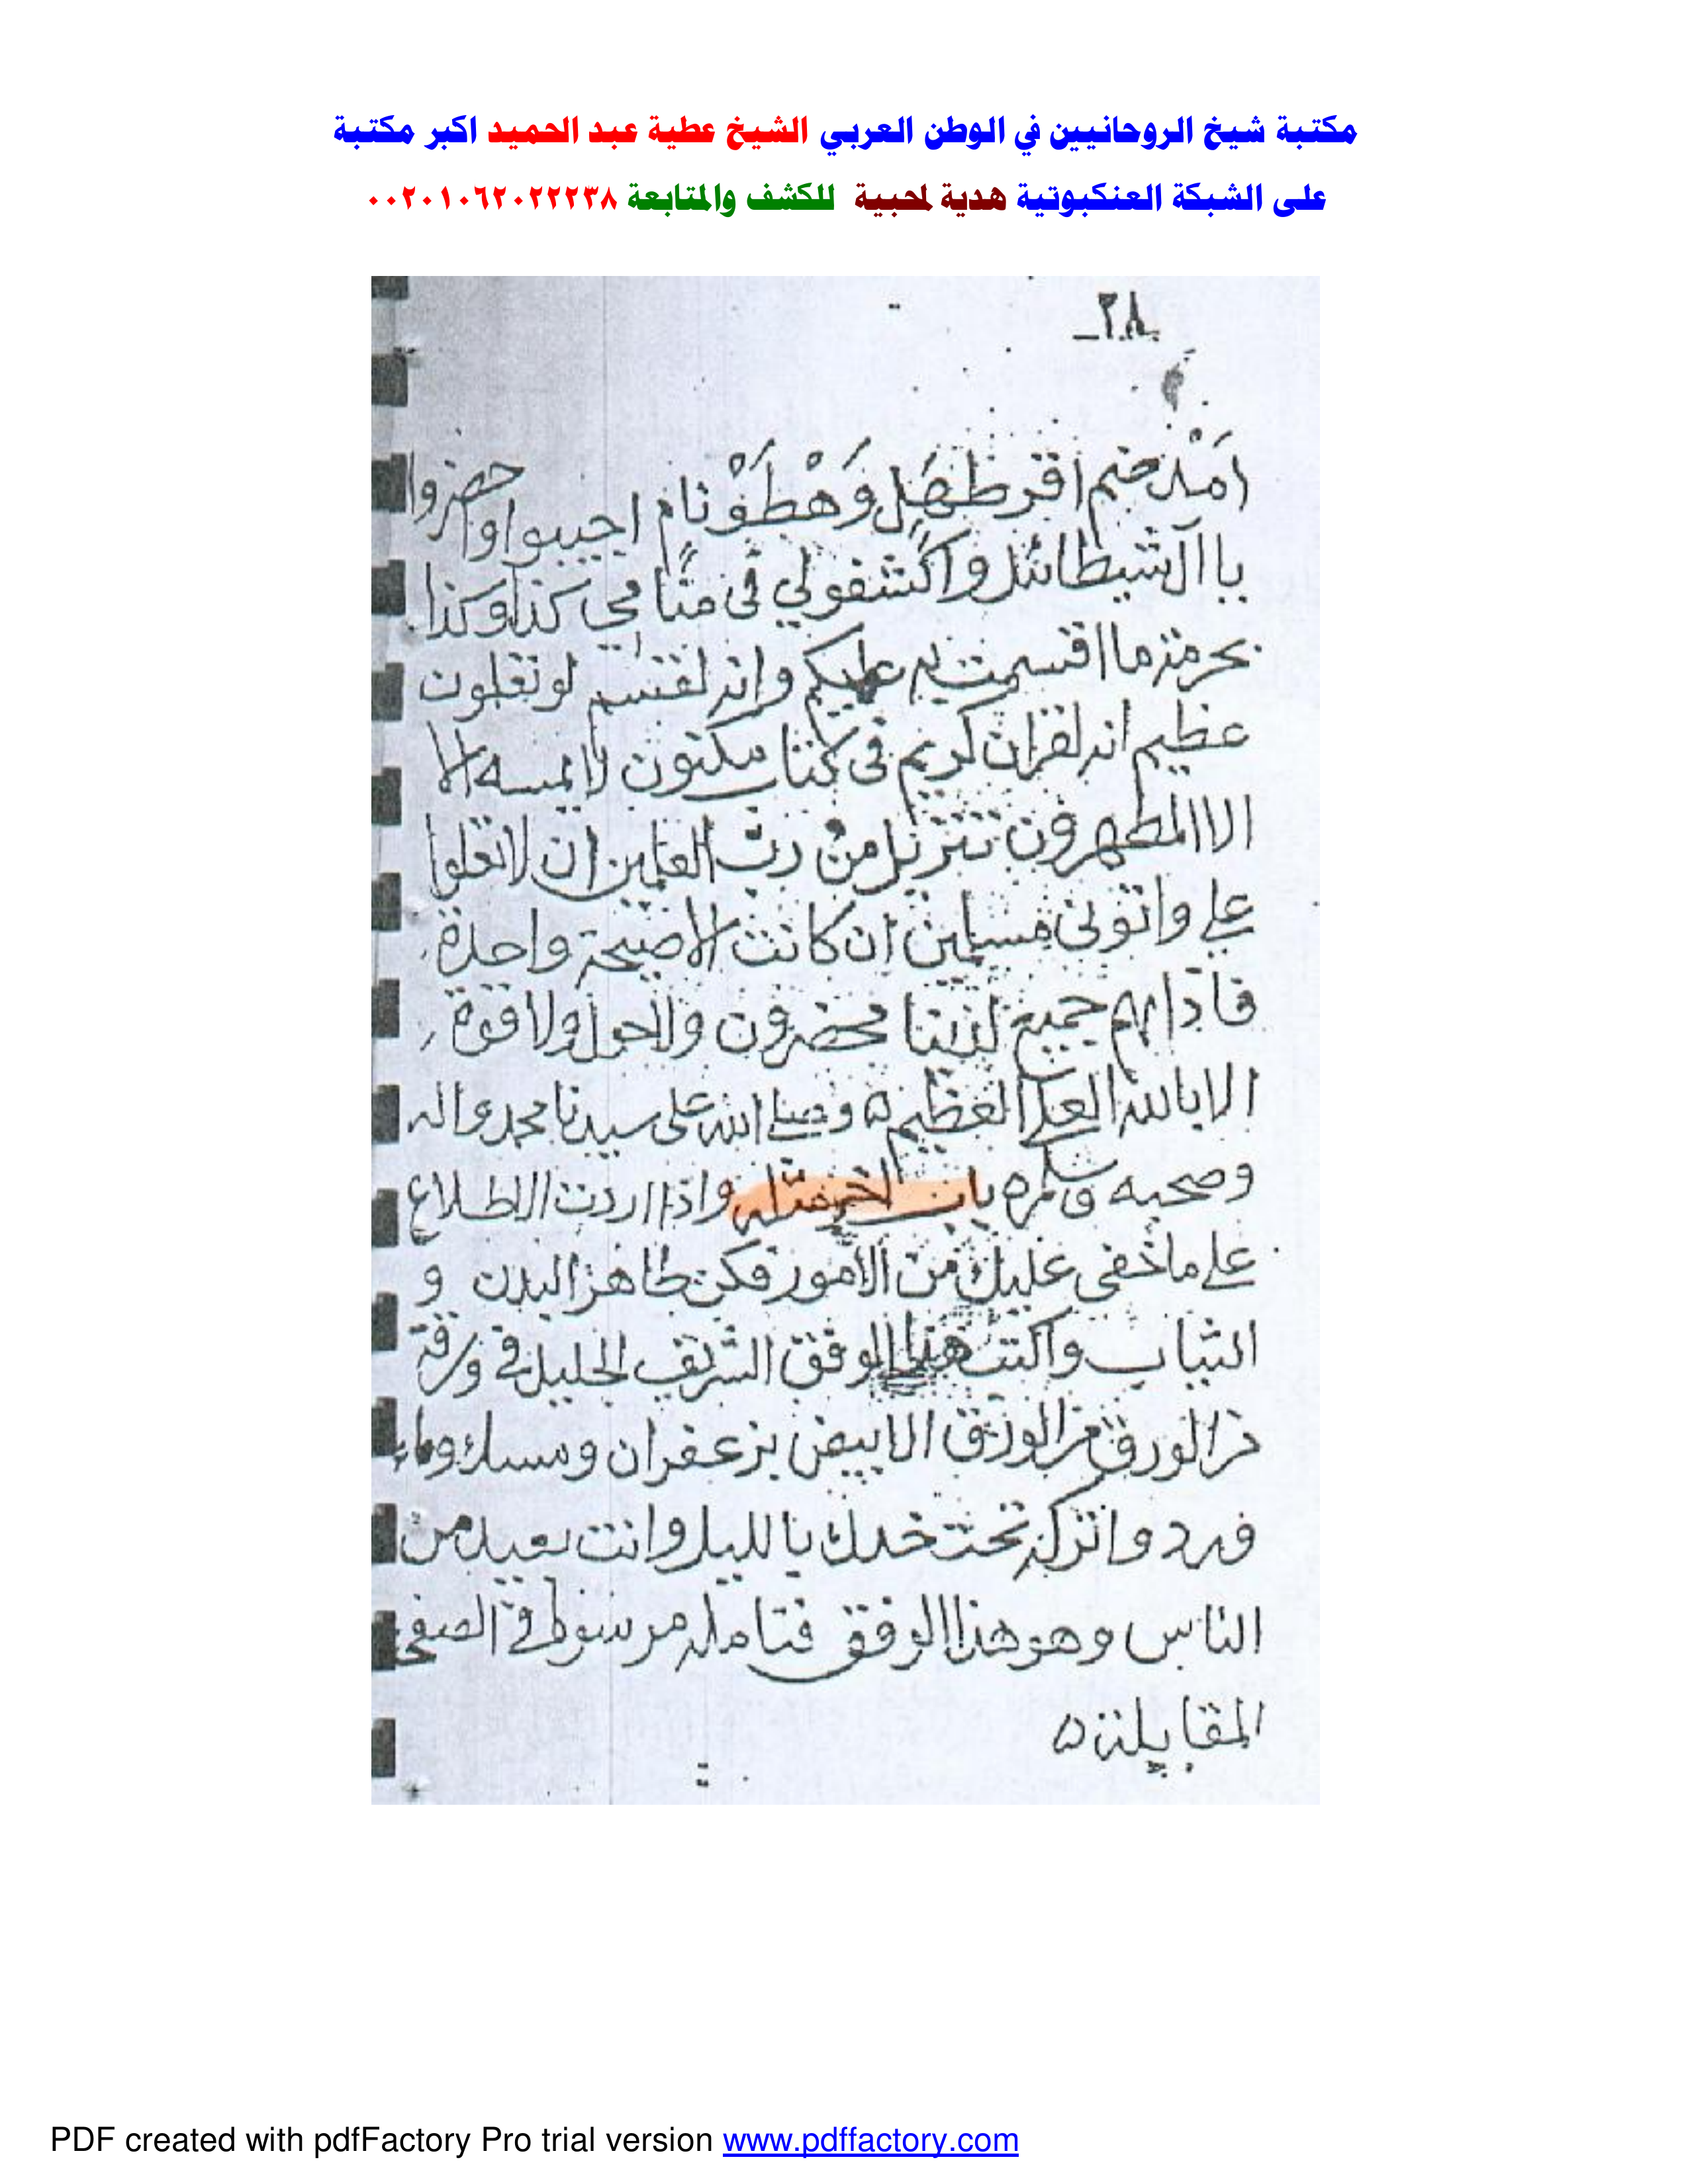 مكتبة شيخ الروحانيين في الوطن العربي الشيخ عطية عبد الحميد اكبر مكتبة
على الشبكة العنكبوتية هدية لمحبية للكشف والمتابعة ٠٠٢٠١٠٦٢٠٢٢٢٣٨
ـ٢٨ـ
اجيبوا واحضروا
واكشفولي فى منامي كذا وكذا
بحرمة ما اقسمت به عليكم وانه لقسم لو تعلمون
عظيم انه لقران كريم فى كتاب مكنون لا يمسه الا
الا المطهرون تنزيل من رب العلمين ان لا تعلوا
علي واتونى مسلمين ان كانت الا صيحة واحدة
فاذا هم جميع لدينا محضرون ولا حول ولا قوة
الا بالله العلي العظيم ه وصلي الله على سيدنا محمد واله
وصحبه وسلم ه باب اخر مثله واذا اردت الاطلاع
علي ما خفى عليك من الأمور فكن طاهر البدن و
الثياب واكتب هذا الوفق الشريف الجليل في ورقة
من الورق من الورق الابيض بزعفران ومسك وماء
ورد واتركه تحت خدك بالليل وانت بعيد من
الناس وهو هذا الوفق فتامله مرسوط في الصفح
المقابلة ه
PDF created with pdfFactory Pro trial version www.pdffactory.com